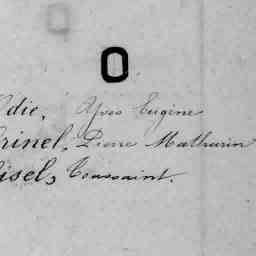 O
Odic, Yves Eugène
Orinel, Pierre Mathurin
Oisel, Toussaint.